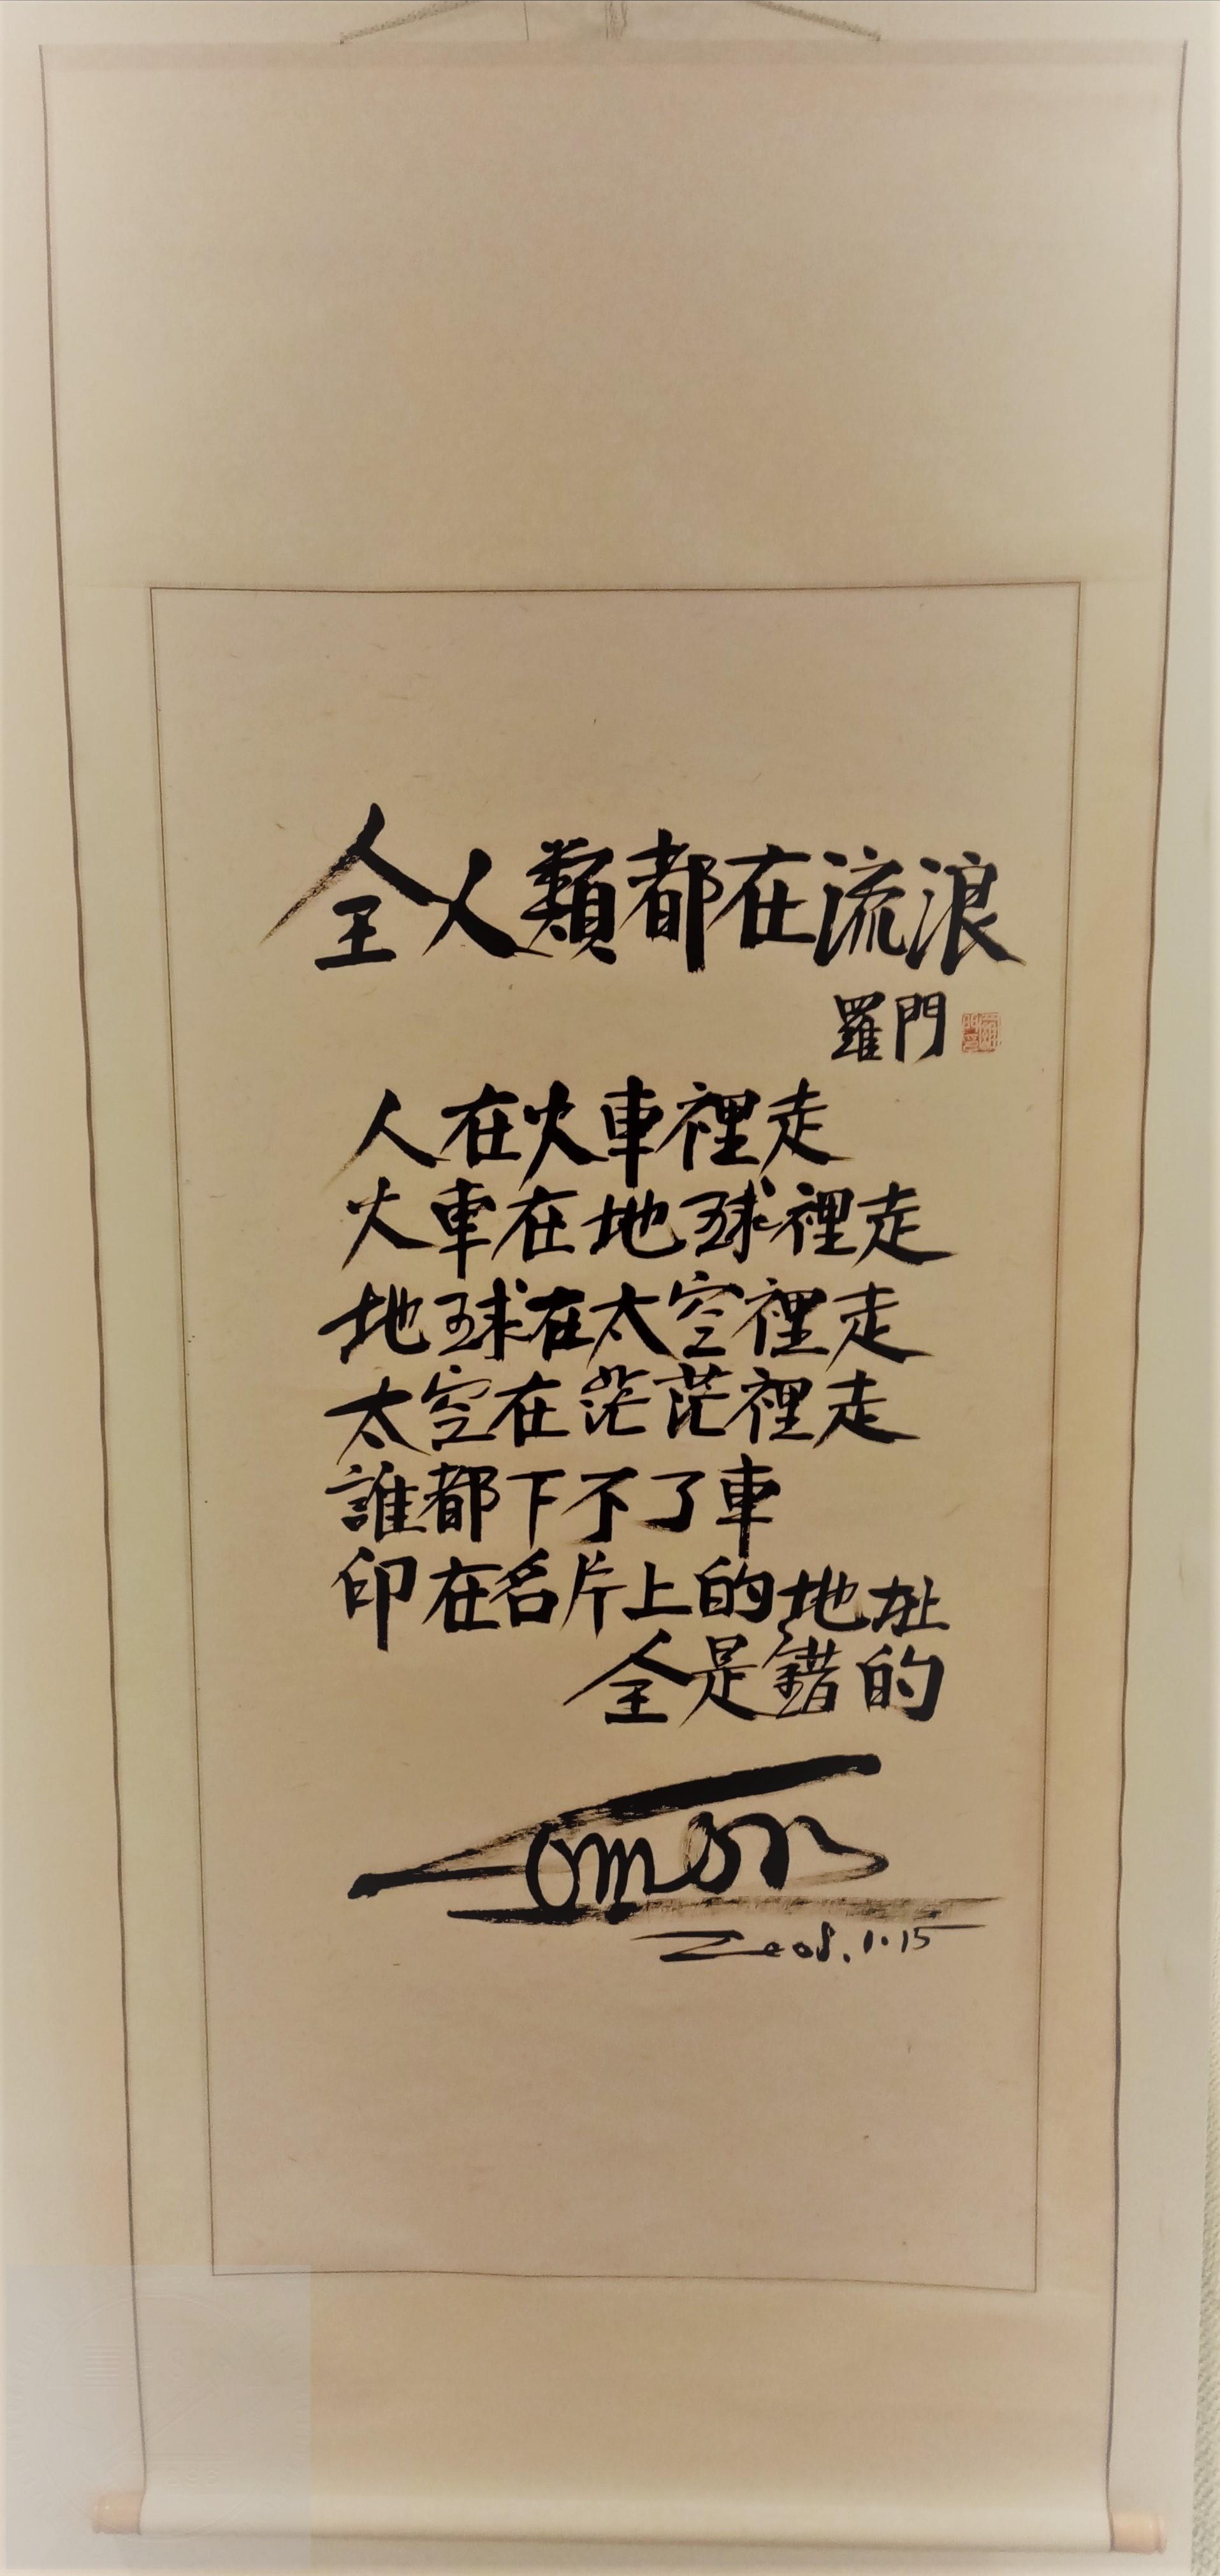 全人類都在流浪
羅門
人在火車裡走
火車在地球裡走
地球在太空裡走
太空在茫茫裡走
誰都下不了車
印在名片上的地址
全是錯的
2008.1.15